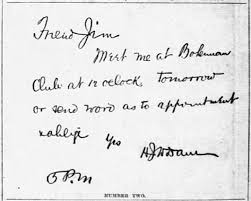 Friend Jim
Meet me at Bohemian
Club at 12 oclock, tomorrow
or send word as to appointment
Yes
5 P.M
NUMBER TWO.